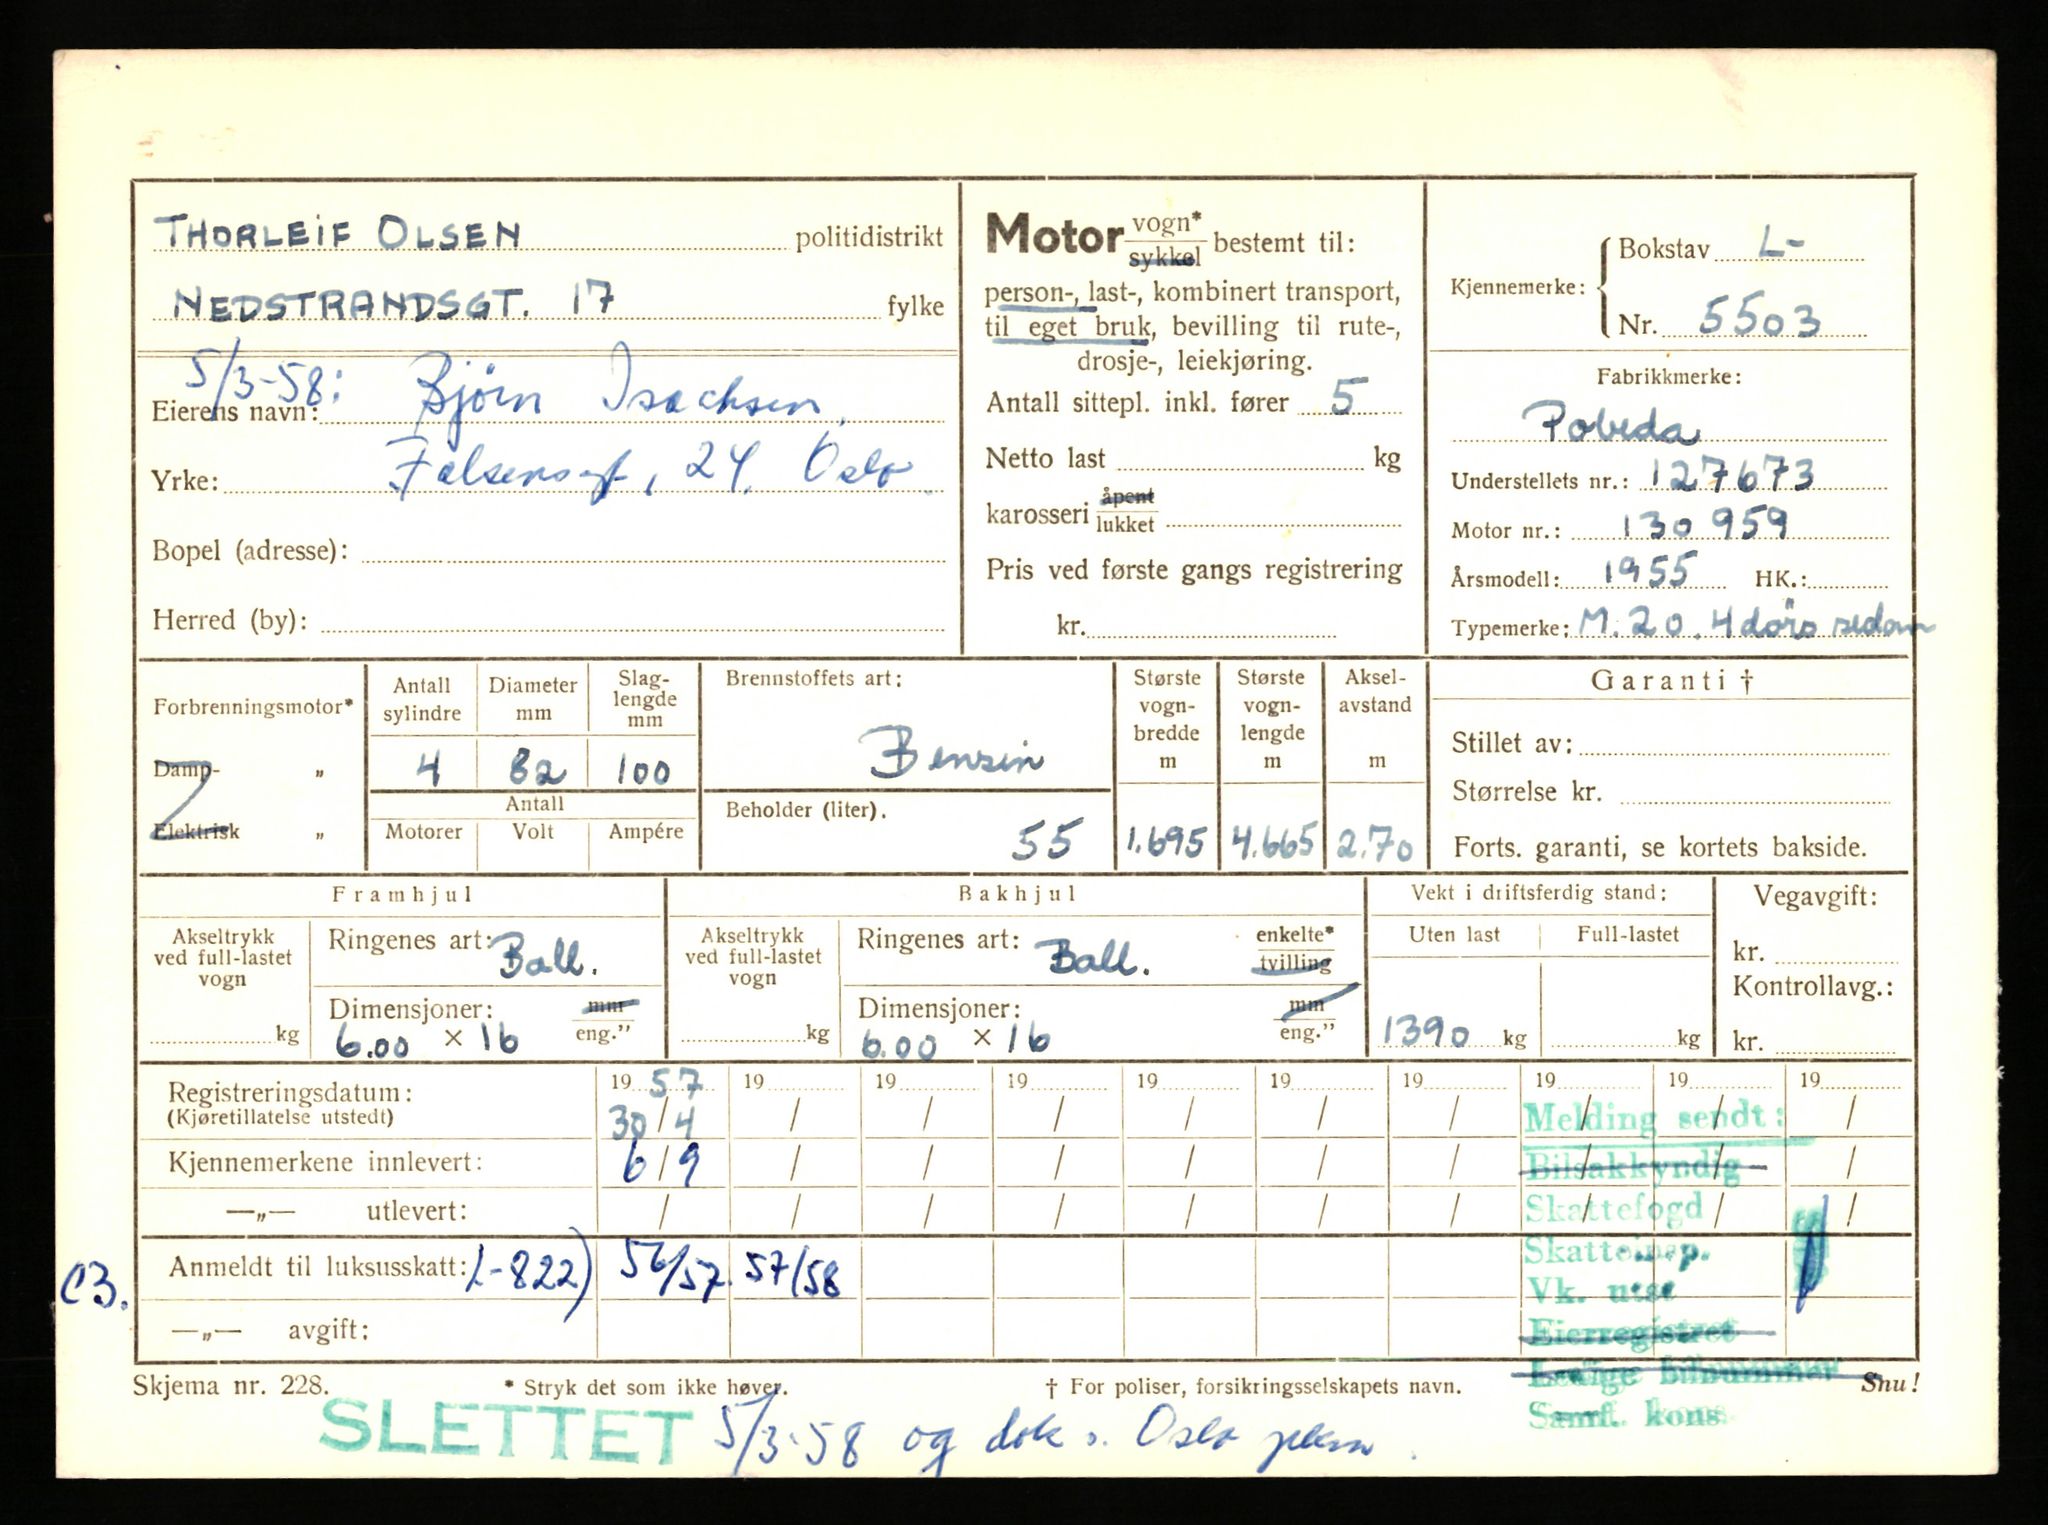 THORLEIF OLSEN politidistrikt
NEDSTRANDSGT. 17 fylke
5/3-58: Bjørn Isachsen
Eierens navn:
Yrke: Falsensgt, 24, Oslo
Bopel (adresse):
Herred (by):
Motor vogn* sykkel bestemt til:
person-, last-, kombinert transport,
til eget bruk, bevilling til rute-,
drosje-, leiekjøring.
Antall sittepl. inkl. fører 5
Netto last kg
karosseri åpent lukket
Pris ved første gangs registrering
kr.
Kjennemerke: Bokstav L-
Nr. 5503
Fabrikkmerke:
Pobeda
Understellets nr.: 127673
Motor nr.: 130959
Årsmodell: 1955 HK.:
Typemerke: M.20. 4 dørs sedan
Forbrenningsmotor*
Damp- „
Elektrisk „
Antall sylindre
Diameter mm
Slag-lengde mm
4 82 100
Antall
Motorer Volt Ampére
Brennstoffets art:
Bensin
Beholder (liter).
55
Største vogn-bredde m
1.695
Største vogn-lengde m
4.665
Aksel-avstand m
2.70
Garanti †
Stillet av:
Størrelse kr.
Forts. garanti, se kortets bakside.
Framhjul
Akseltrykk ved full-lastet vogn
kg
Ringenes art: Ball.
Dimensjoner: mm
6.00 × 16 eng.”
Bakhjul
Akseltrykk ved full-lastet vogn
kg
Ringenes art: Ball. enkelte* tvilling
Dimensjoner: mm
6.00 × 16 eng.”
Vekt i driftsferdig stand:
Uten last Full-lastet
1390 kg kg
Vegavgift:
kr.
Kontrollavg.:
kr.
Registreringsdatum: 19 57 19 19 19 19 19 19 19 19 19
(Kjøretillatelse utstedt) 30/4 / / / / / / / / /
Kjennemerkene innlevert: 6/9 / / / / / / / / /
—„— utlevert: / / / / / / / / / /
C3. Anmeldt til luksusskatt: L-822) 56/57. 57/58
—„— avgift:
Melding sendt:
Bilsakkyndig
Skattefogd
Skatteinsp.
Vk. utst
Eierregistret
Ledige bilnummer
Samf. kons.
Skjema nr. 228. * Stryk det som ikke høver. † For poliser, forsikringsselskapets navn. Snu!
SLETTET 5/3-58 og dok s. Oslo